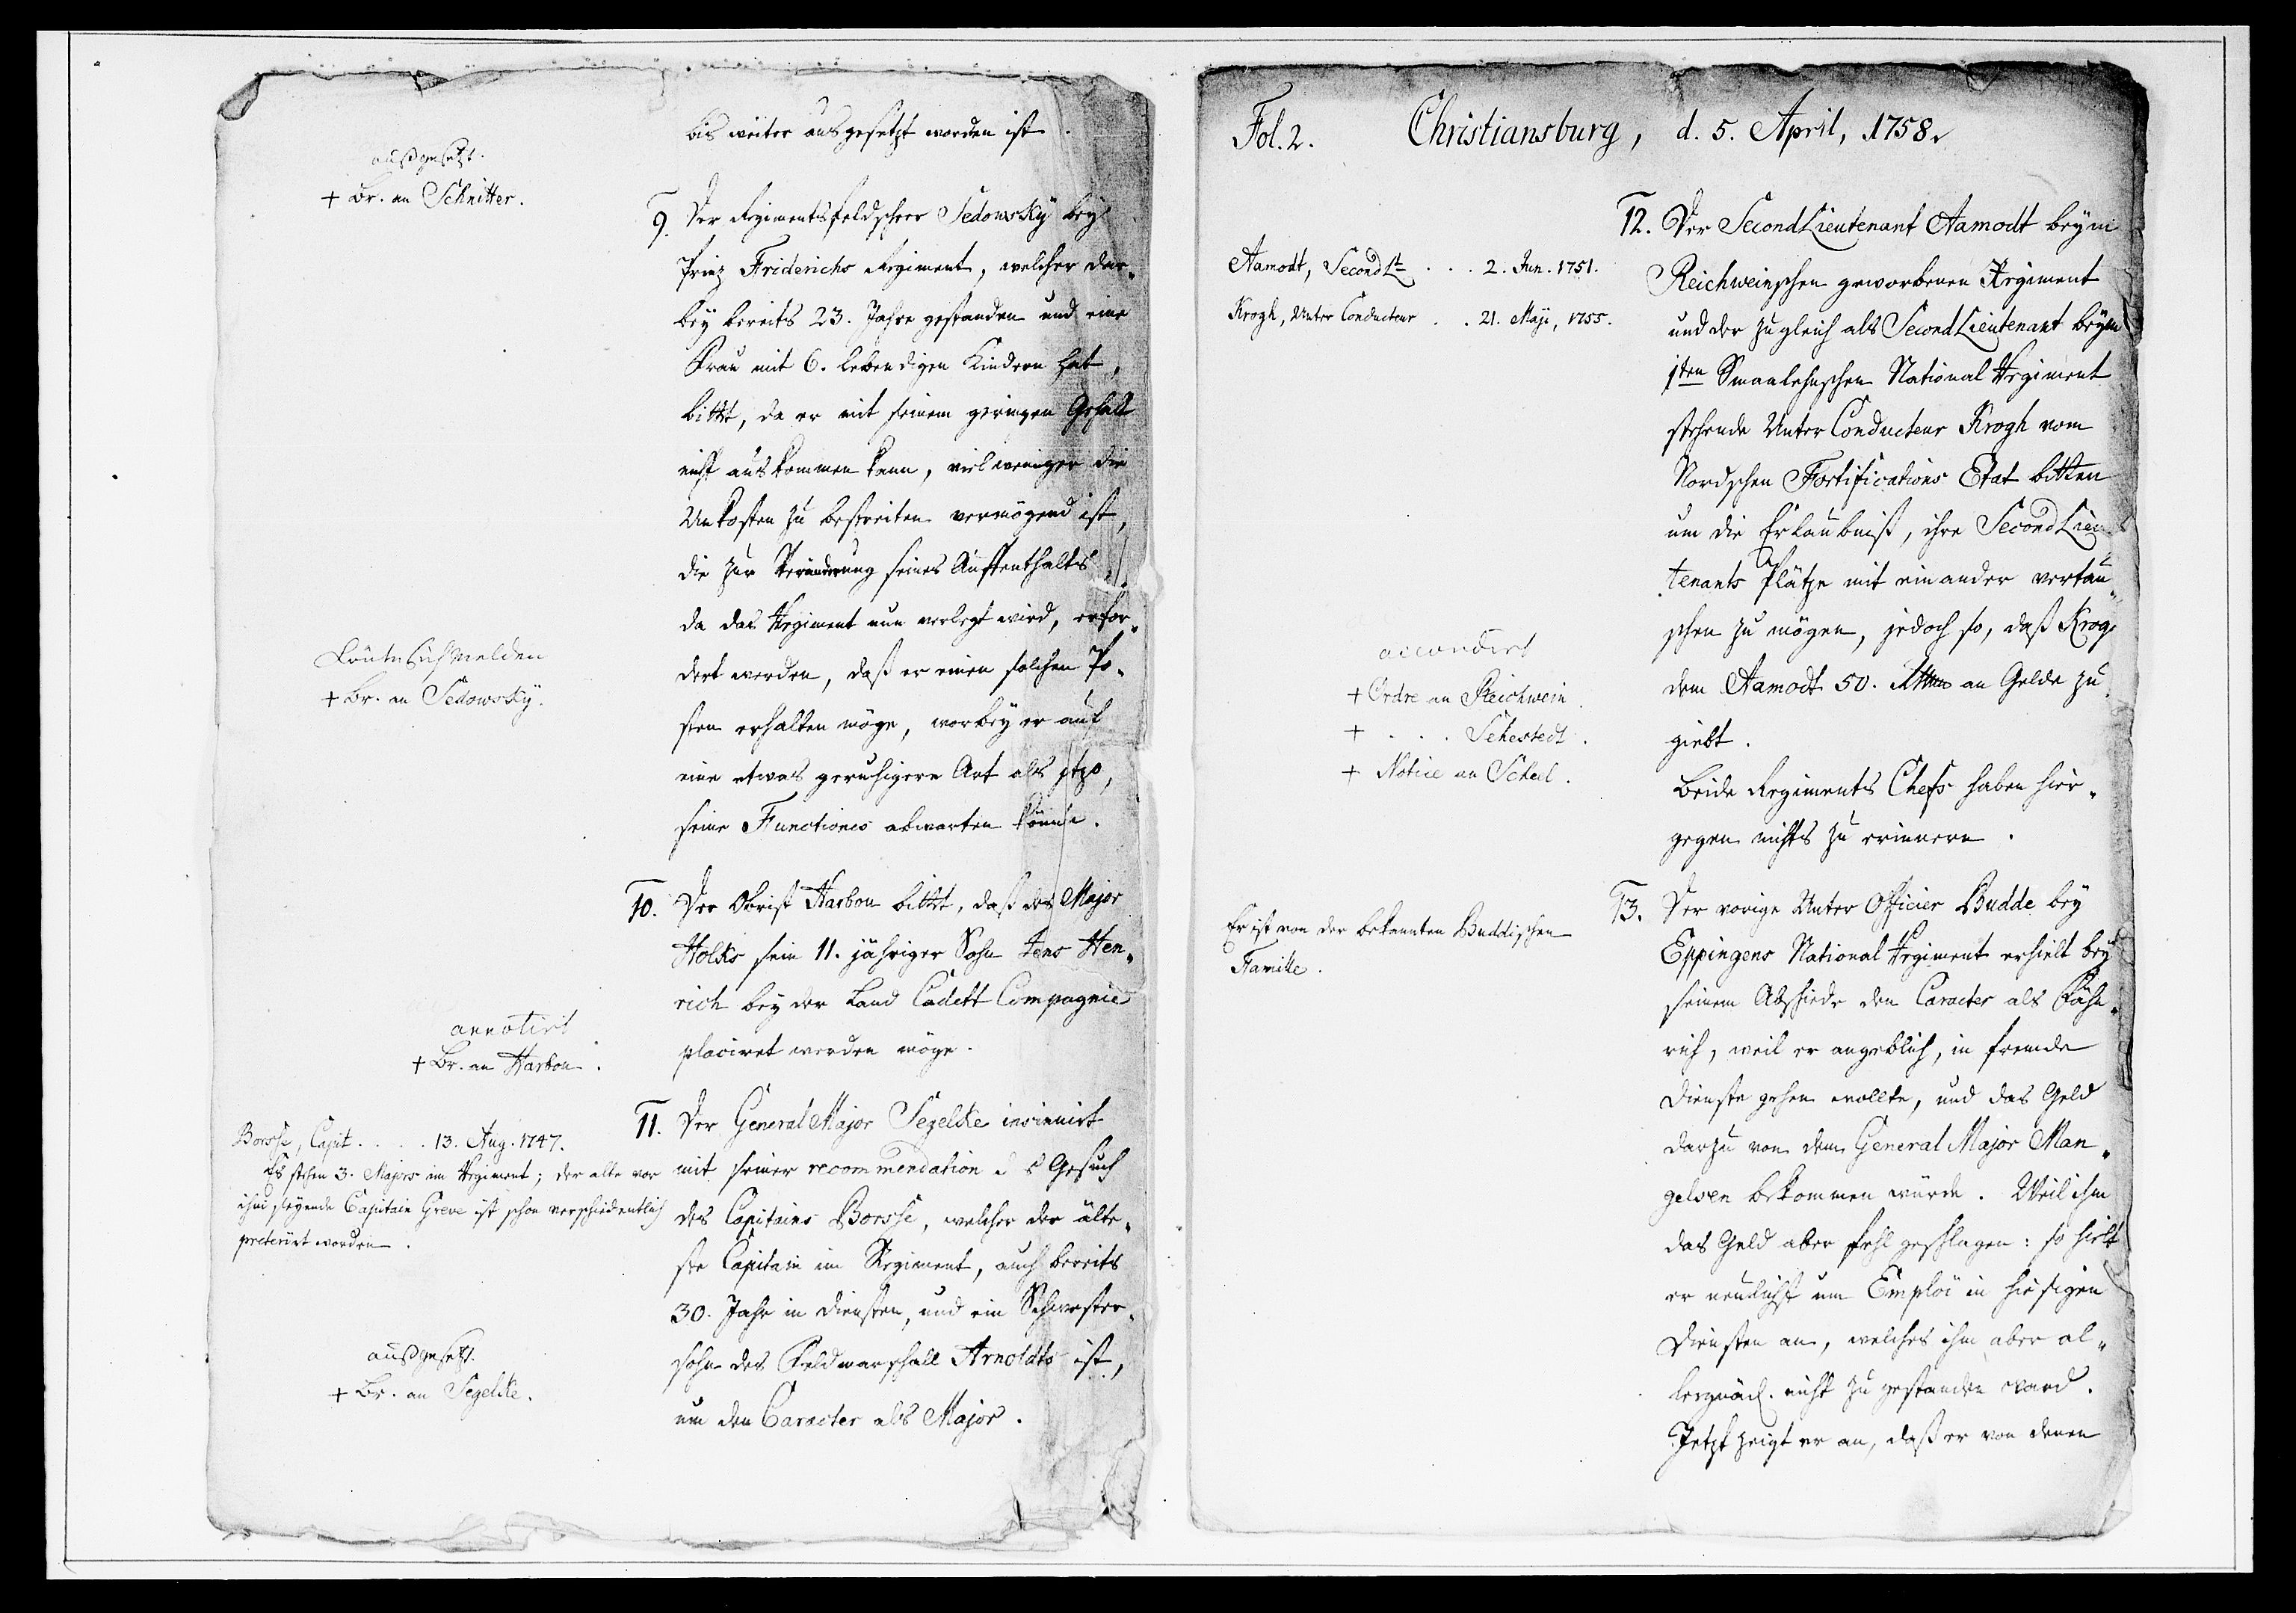 bis weiter ausgesetzt worden ist.
außgesetzt.
+ Br. an Schnitter.
9. Der Regimentsfeldscheer Sedowsky bey
Prinz Friderichs Regiment, welcher dar„
bey bereits 23. Jahre gestanden und eine
Frau mit 6. lebendigen Kindern hat,
bittet, da er mit seinem geringen Gehalt
nicht auskommen kann, viel weniger die
Unkosten zu bestreiten vermögend ist,
die zur Veränderung seines Auffenthalts,
da das Regiment nun verlegt wird, erfor„
dert werden, daß er einen solchen Po„
sten erhalten möge, worbey er auf
eine etwas geruhigere Art als jtzo,
seine Functiones abwarten könne.
könte sich melden
+ Br. an Sedowsky.
10. Der Obrist Harbou bittet, daß des Major
Holks sein 11. jähriger Sohn Jens Hen„
rich bey der Land Cadett Compagnie
placiret werden möge.
annotirt
+ Br. an Harbou.
11. Der General Major Segelcke insinuirt
mit seiner recommendation d s Gesuch
des Capitains Borsse, welcher der älte„
ste Capitain im Regiment, auch bereits
30. Jahr in Diensten, und ein Schwester„
sohn des Feldmarschall Arnoldts ist,
um den Caracter als Major.
Borsse, Capit. . . . 13. Aug. 1747.
Es stehen 3. Majors im Regiment; der alte vor
ihm stehende Capitain Greve ist schon verschiedentlich
preterirt worden.
außgesetzt.
+ Br. an Segelcke.
Fol. 2. Christiansburg, d. 5. April, 1758.
12. Der SecondLieutenant Aamodt beym
Reichweinschen geworbenen Regiment
und der zugleich als SecondLieutenant beym
1ten Smaalehnschen National Regiment
stehende Unter Conducteur Krogh vom
Nordschen Fortifications Etat bitten
um die Erlaubniß, ihre SecondLieu„
tenants Plätze mit einander vertau„
schen zu mögen, jedoch so, daß Krogh
dem Aamodt 50. Rthlr an Gelde zu
giebt.
Beide Regiments Chefs haben hier„
gegen nichts zu erinnern.
Aamodt, SecondLt . . . 2. Jun. 1751.
Krogh, Unter Conducteur . . 21. Maji, 1755.
accordirt
+ Ordre an Reichwein.
+ . . . Sehestedt.
+ Notice an Scheel.
13. Der vorige Unter Officier Budde bey
Eppingens National Regiment erhielt bey
seinem Abschiede den Caracter als Fähn„
rich, weil er angeblich, in fremde
Dienste gehen wollte, und das Geld
darzu von dem General Major Man„
gelsen bekommen würde. Weil ihm
das Geld aber fehl geschlagen: so hielt
er neulichst um Emploi in hiesigen
Diensten an, welches ihm aber al„
lergnäd. nicht zugestanden ward.
Jetzt zeigt er an, daß er von denen
Er ist von der bekannten Buddischen
Familie.